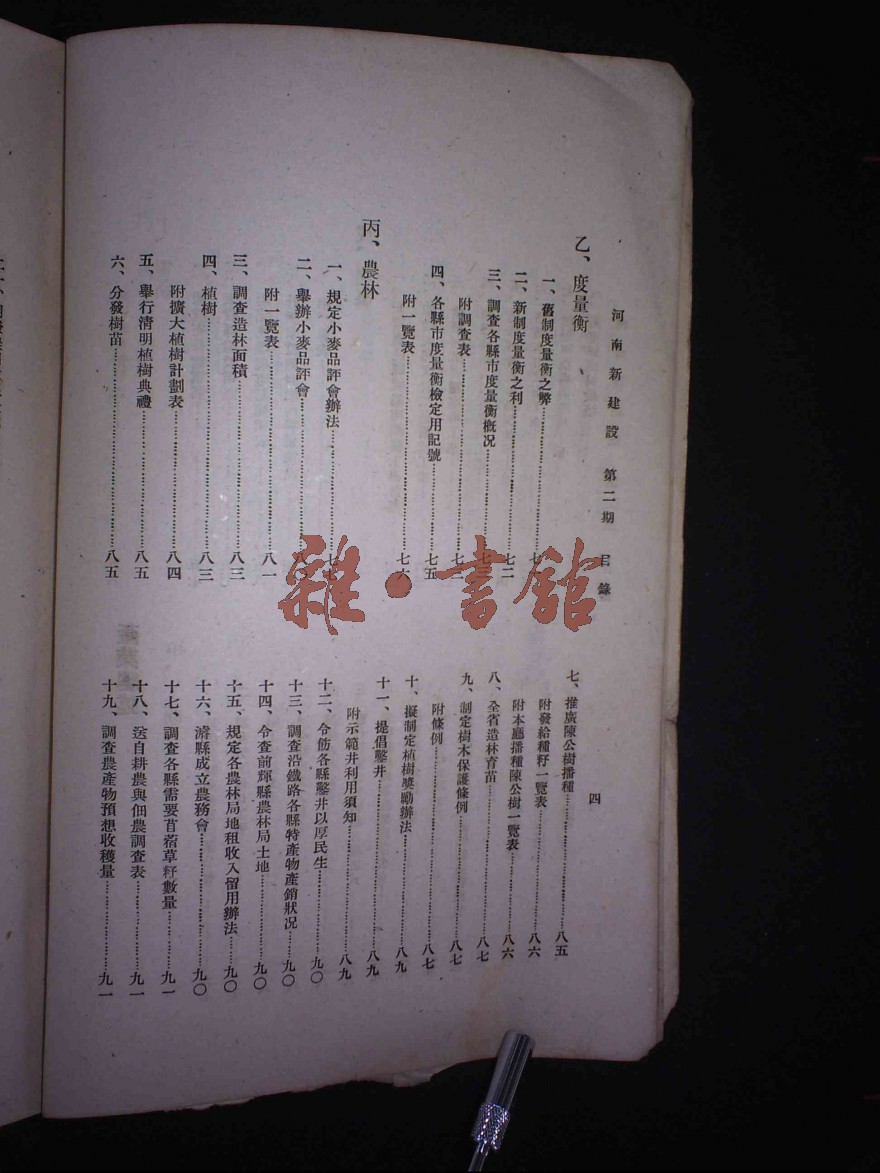 河南新建設 第二期 目錄
四
乙、度量衡
一、舊制度量衡之弊
二、新制度量衡之利……七二
三、調查各縣市度量衡概况
附調查表
四、各縣市度量衡檢定用記號……七五
附一覽表……七六
丙、農林
一、規定小麥品評會辦法……七七
二、舉辦小麥品評會
附一覽表……八一
三、調查造林面積……八三
四、植樹……八三
附擴大植樹計劃表……八四
五、舉行清明植樹典禮……八五
六、分發樹苗……八五
七、推廣陳公樹播種……八五
附發給種籽一覽表……八六
附本廳播種陳公樹一覽表……八六
八、全省造林育苗……八七
九、制定樹木保護條例……八七
附條例……八七
十、擬制定植樹獎勵辦法……八九
十一、提倡鑿井……八九
附示範井利用須知……八九
十二、令飭各縣鑿井以厚民生……九〇
十三、調查沿鐵路各縣特產物產銷狀况……九〇
十四、令查前輝縣農林局土地……九〇
十五、規定各農林局地租收入留用辦法……九〇
十六、濬縣成立農務會……九〇
十七、調查各縣需要苜蓿草籽數量……九一
十八、送自耕農與佃農調查表……九一
十九、調查農產物預想收穫量……九一
雜·書館